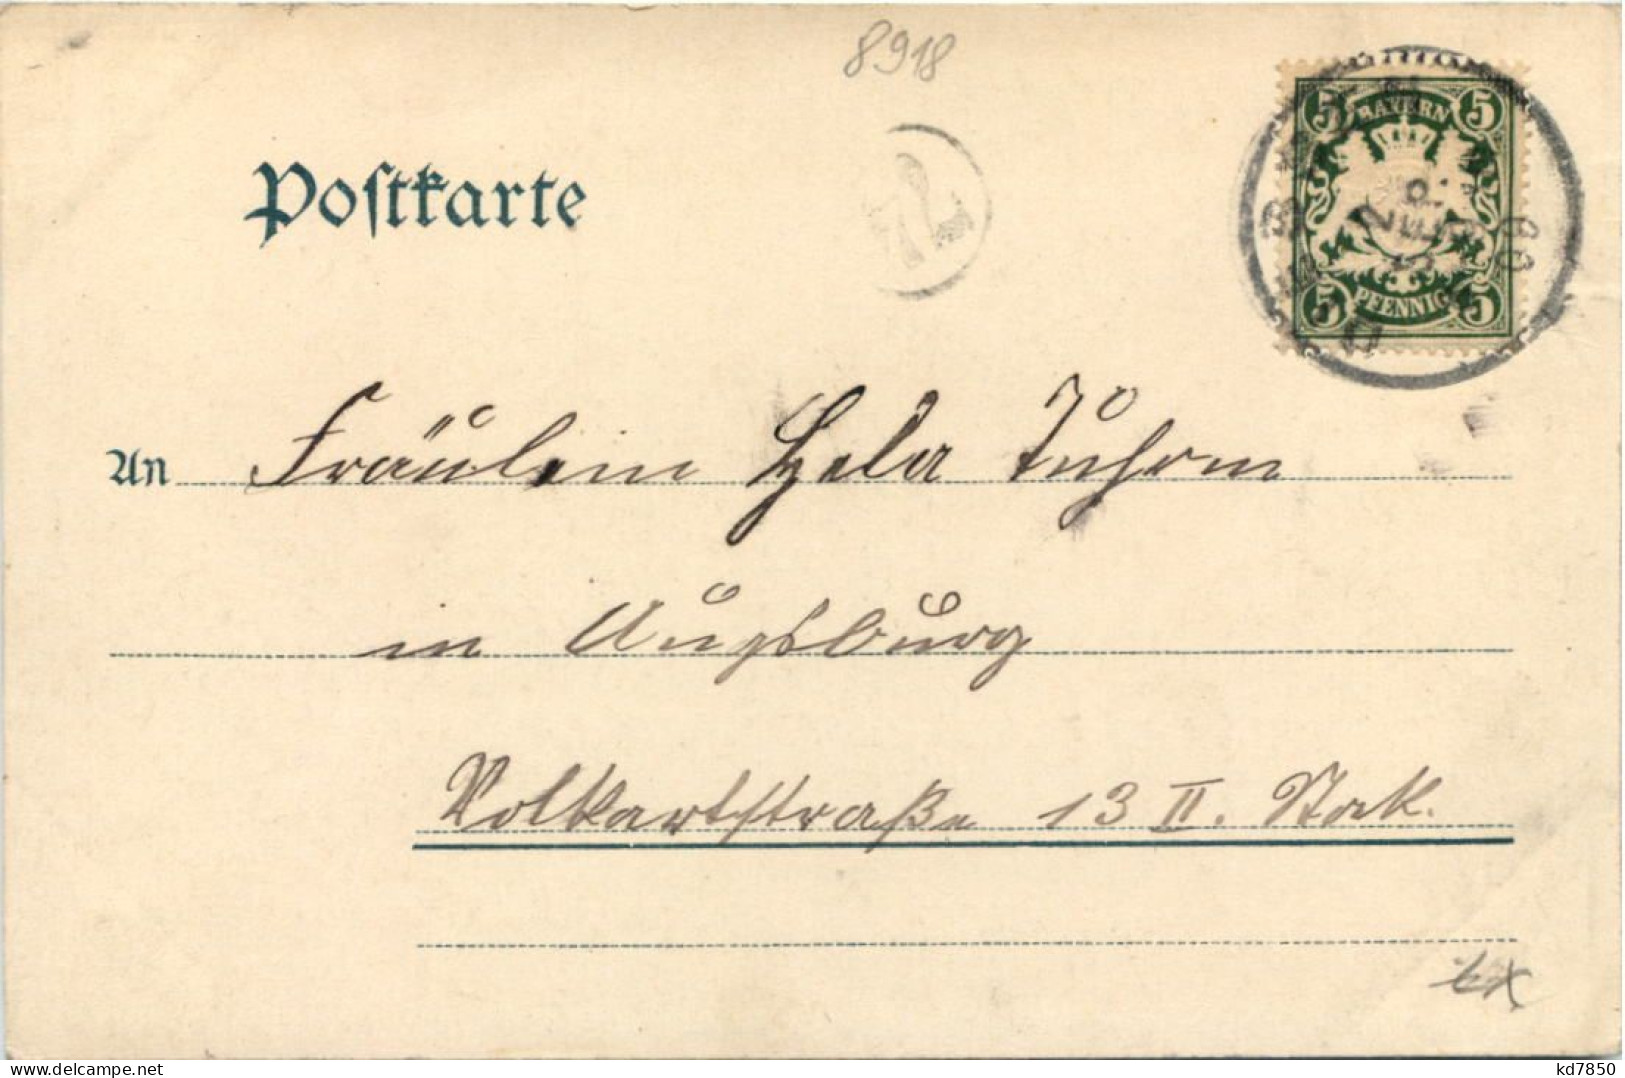 8918
Postkarte
5 BAYERN 5
5 PFENNIG 5
An Fräulein Hela
in Augsburg
Volkartstraße 13 II. Stock.
kd7850